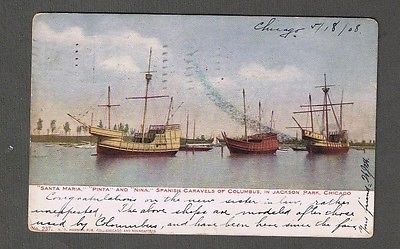 Chicago 5/18/08
"SANTA MARIA," "PINTA" AND "NINA," SPANISH CARAVELS OF COLUMBUS, IN JACKSON PARK, CHICAGO
Congratulations on the new sister in law. Rather
unexpected. The above ships are modeled after those
used by Columbus, and have been here since the
No. 237.
Your friend